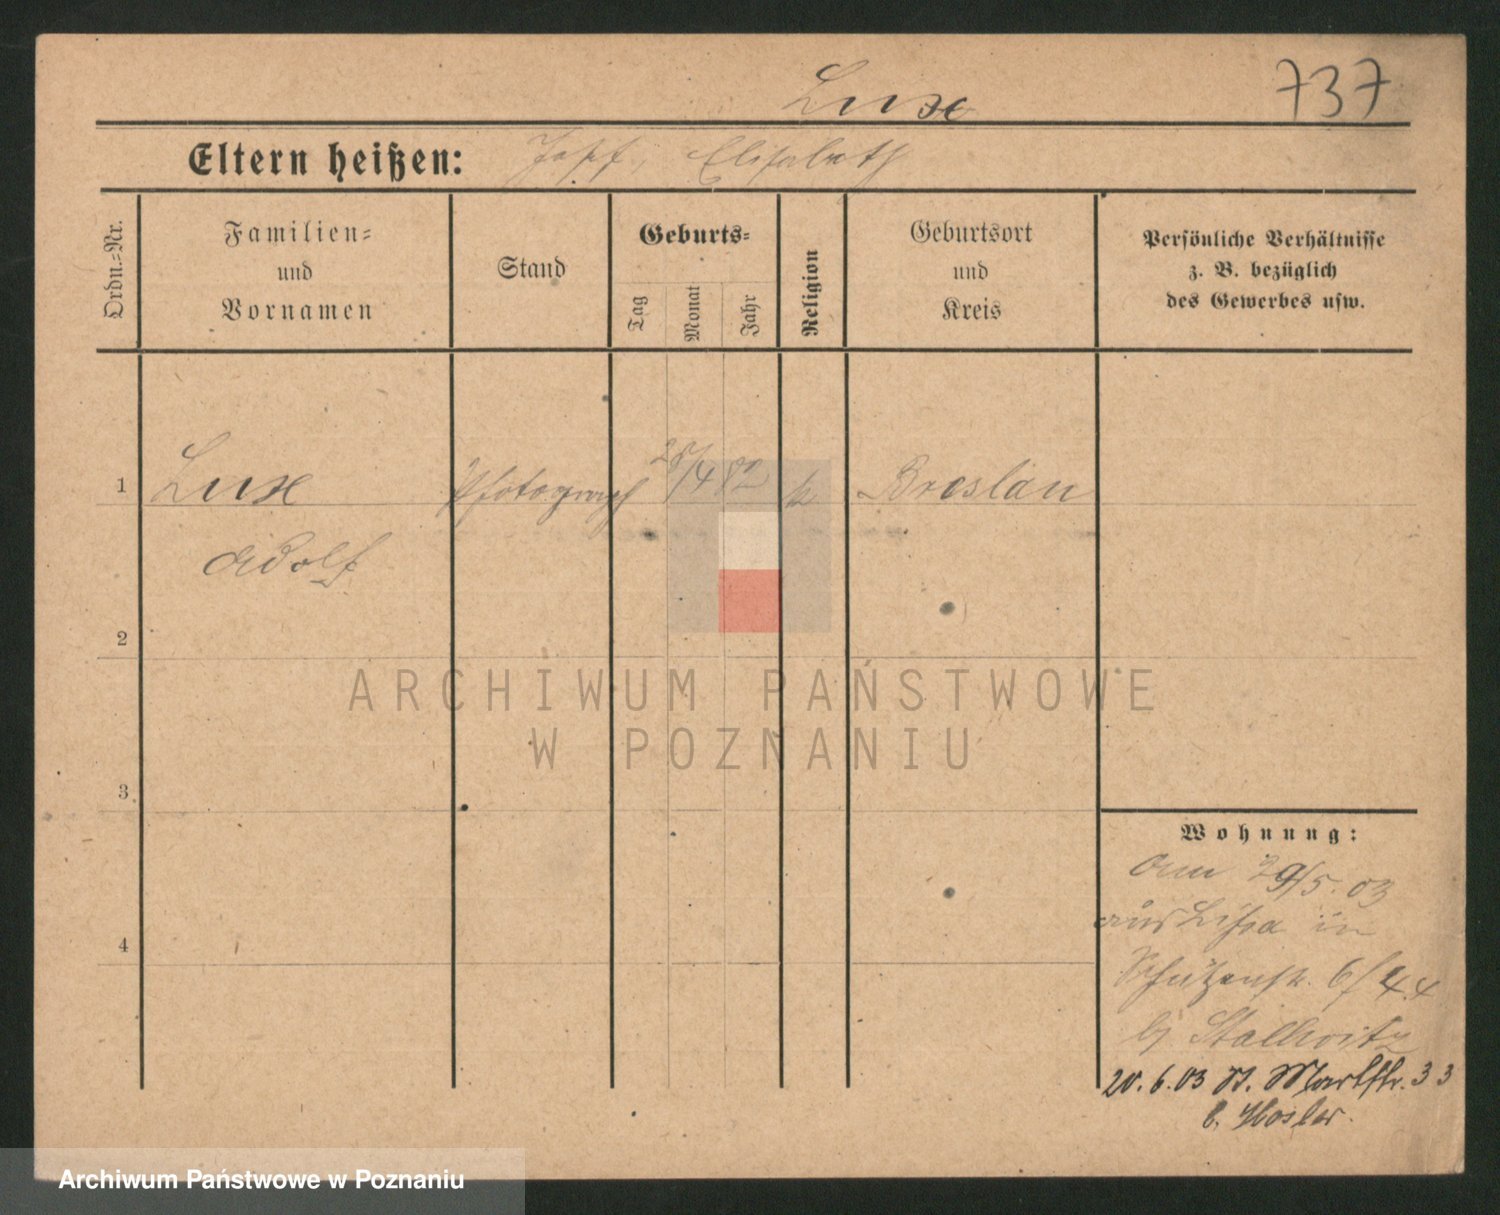 Luxe 737
Eltern heißen: Josef, Elisabeth
Ordn.-Nr.
Familien-
und
Vornamen
Stand
Geburts-
Tag
Monat
Jahr
Religion
Geburtsort
und
Kreis
Persönliche Verhältnisse
z. B. bezüglich
des Gewerbes usw.
1 Luxe Photograph 28/4 82 k Breslau
Adolf
2
ARCHIWUM PAŃSTWOWE
W POZNANIU
3
Wohnung:
29/5. 03
aus Lissa in
4
Schützenstr. 6/
b/
20. 6. 03 St. Martstr. 33
b.
Archiwum Państwowe w Poznaniu